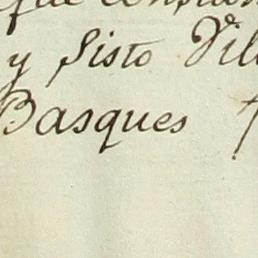 y Sisto Vil
Basques